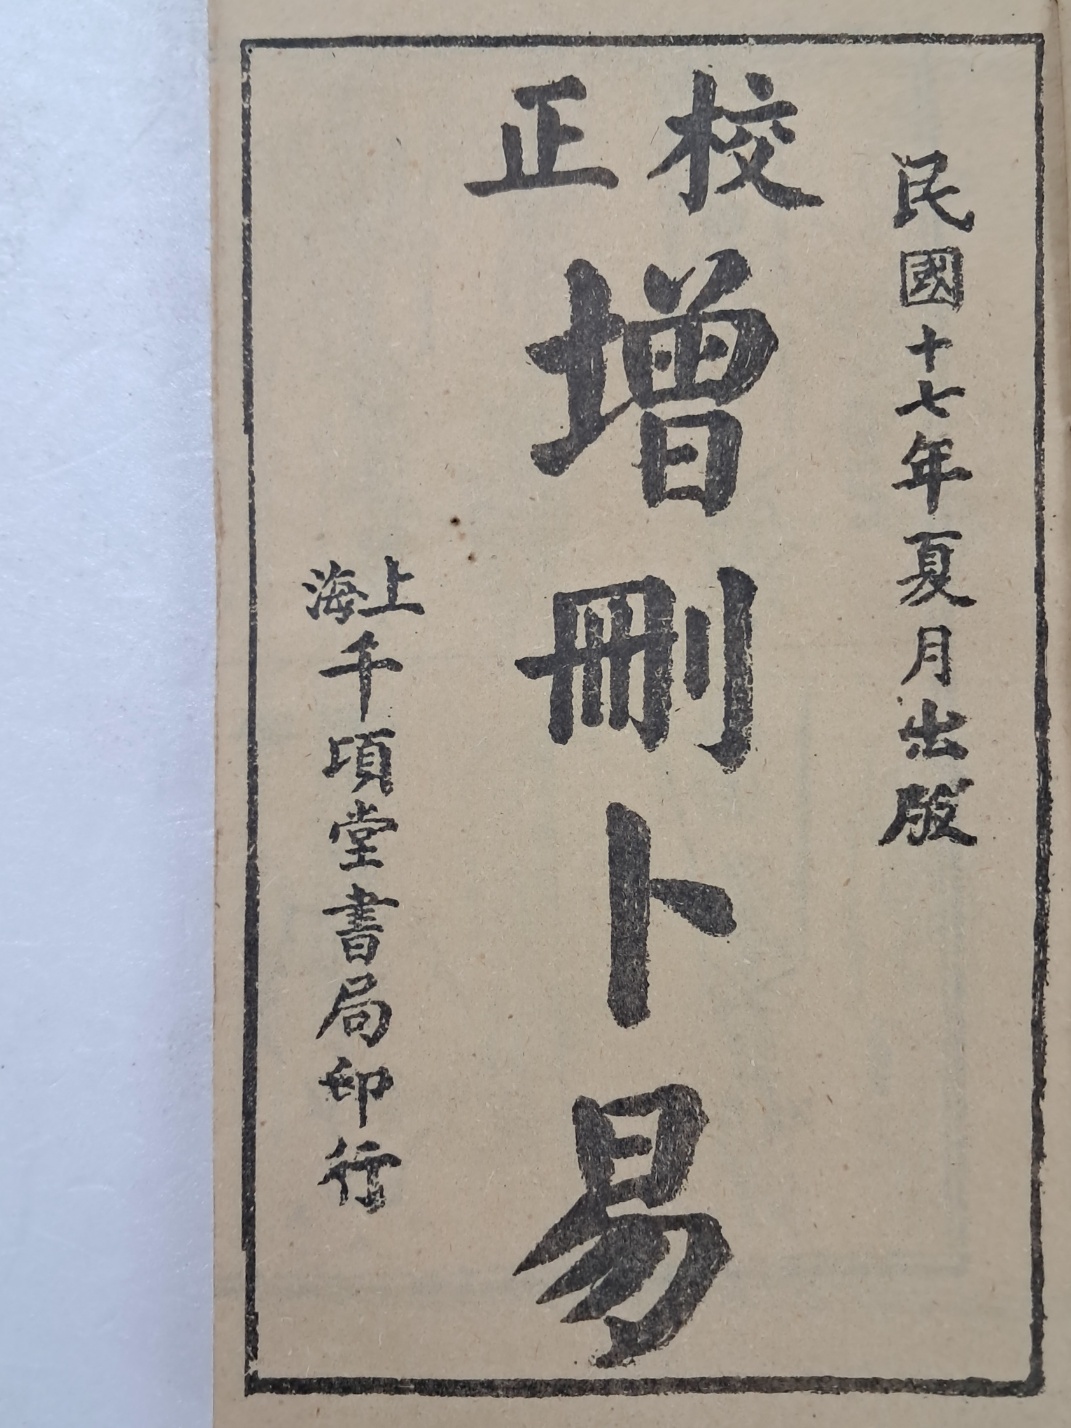 民國十七年夏月出版
校正
增刪卜易
上海
千頃堂書局印行